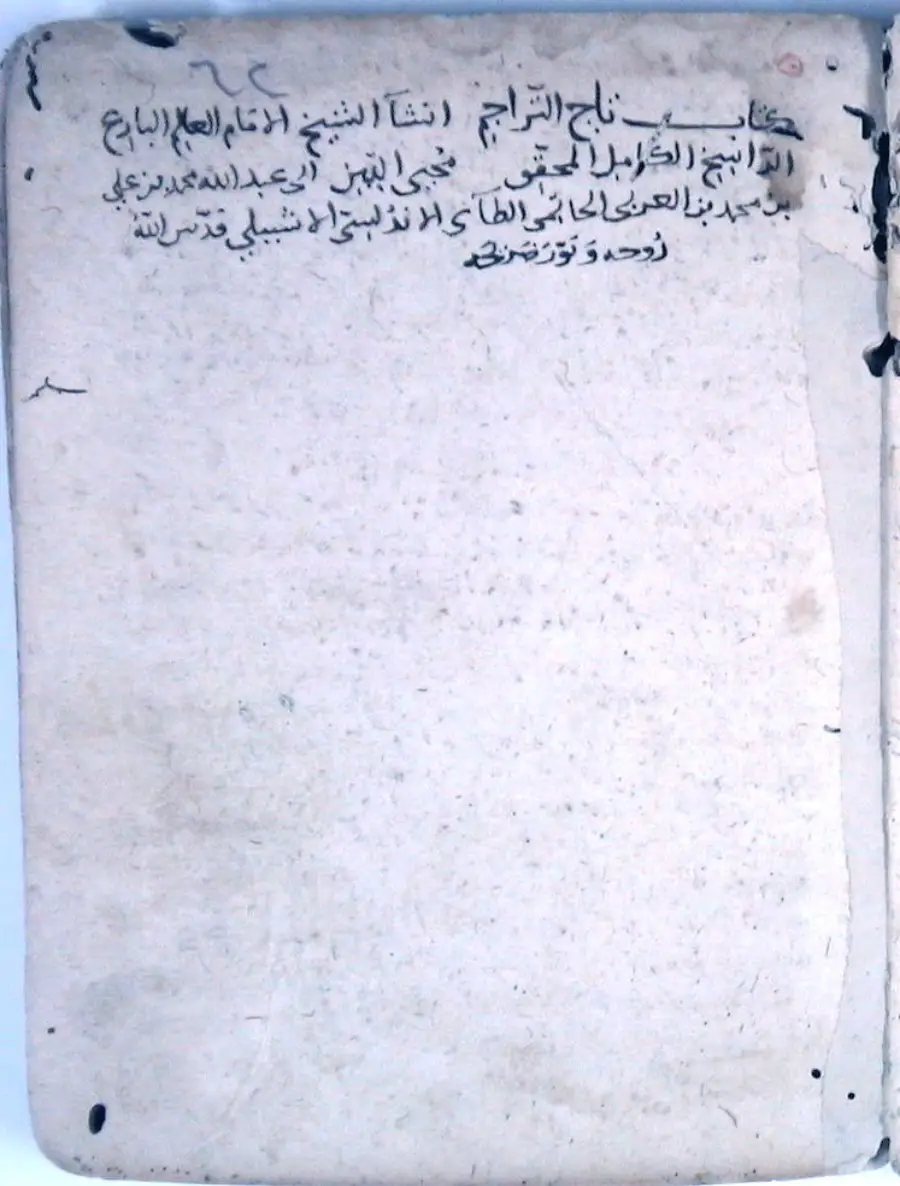 كتاب تاج التراجم انشآ الشيخ الامام العالم البارع
الراسخ الكامل المحقق محيى الدين ابى عبد الله محمد بن علي
بن محمد بن العربى الحاتمى الطآئى الاندلسى الاشبيلي قدس الله
روحه ونور ضريحه